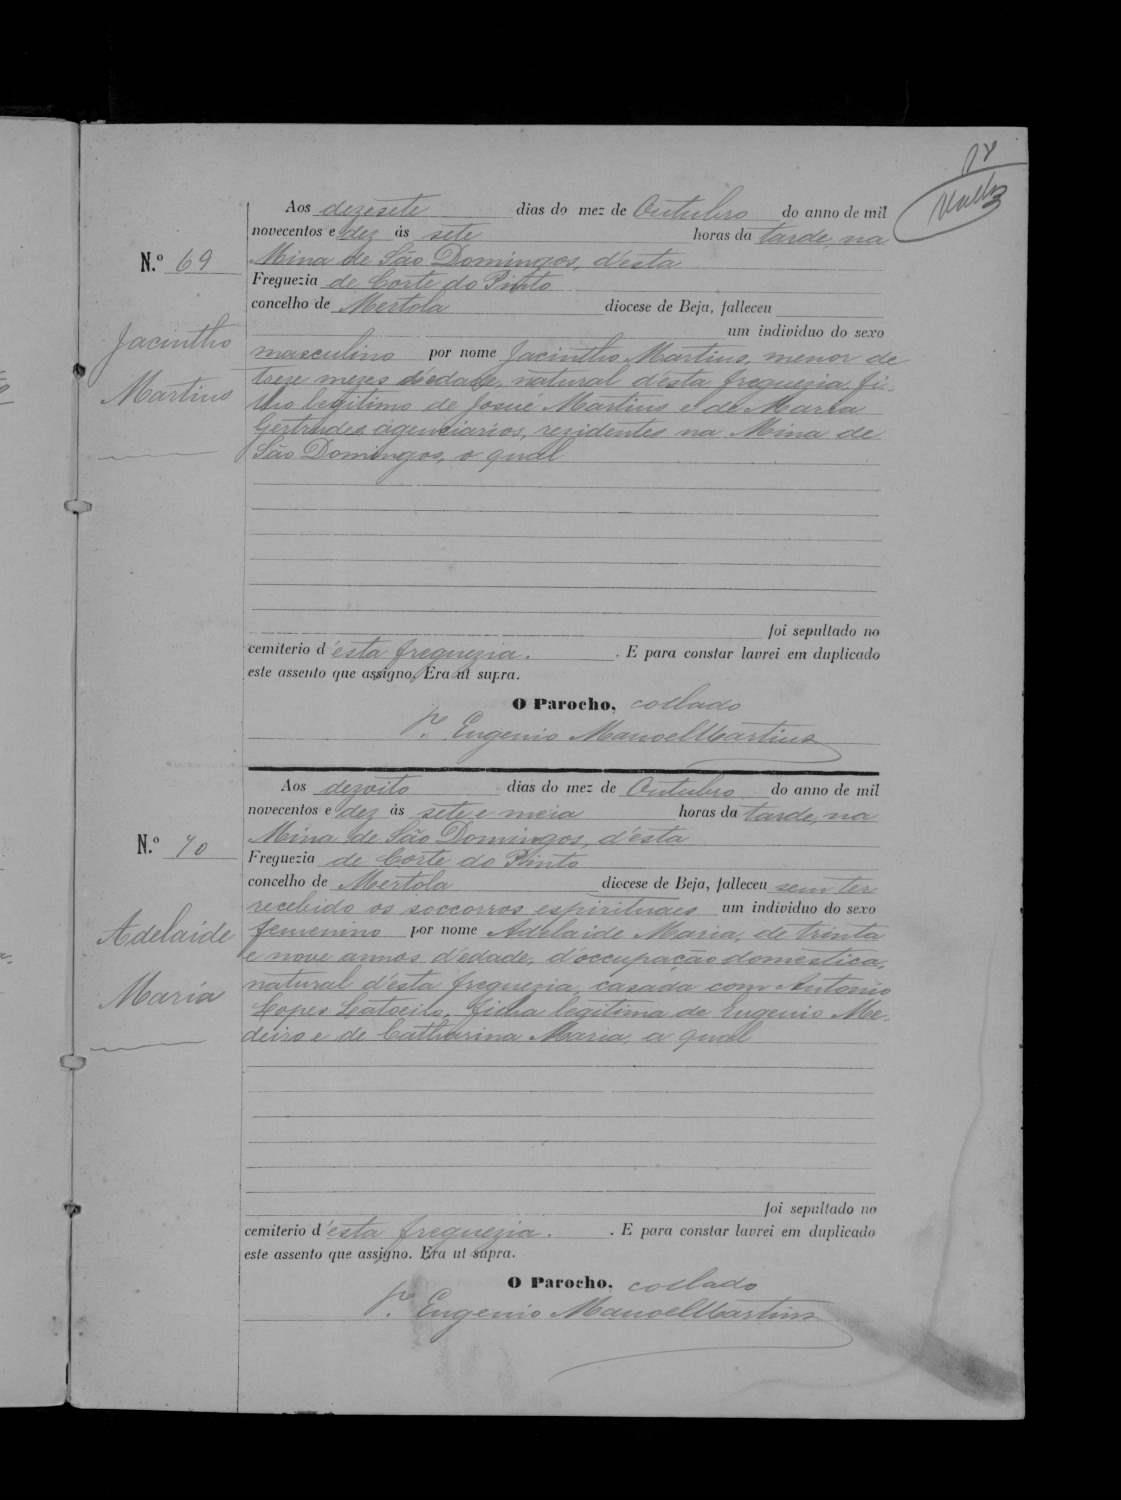 Aos dezesete dias do mez de Outubro do anno de mil
novecentos e dez ás sete horas da tarde, na
N.º 69
Mina de São Domingos, d'esta
Freguezia de Corte do Pinto
concelho de Mertola diocese de Beja, falleceu
um individuo do sexo
Jacintho
Martins
masculino por nome Jacintho Martins, menor de
treze mezes d'edade, natural d'esta freguezia, fi-
lho legitimo de Josué Martins e de Maria
Gertrudes agenciarios, rezidentes na Mina de
São Domingos, o qual
foi sepultado no
cemiterio d'esta freguezia. E para constar lavrei em duplicado
este assento que assigno. Era ut supra.
O Parocho, collado
P.e Eugenio Manoel Martins
Aos dezoito dias do mez de Outubro do anno de mil
novecentos e dez ás sete e meia horas da tarde, na
N.º 70
Mina de São Domingos, d'esta
Freguezia de Corte do Pinto
concelho de Mertola diocese de Beja, falleceu sem ter
recebido os soccorros espirituaes um individuo do sexo
Adelaide
Maria
femenino por nome Adelaide Maria, de trinta
e nove annos d'edade, d'occupação domestica,
natural d'esta freguezia, casada com Antonio
Lopes filha legitima de Eugenio Me-
deiro e de Catharina Maria, a qual
foi sepultado no
cemiterio d'esta freguezia. E para constar lavrei em duplicado
este assento que assigno. Era ut supra.
O Parocho, collado
P.e Eugenio Manoel Martins